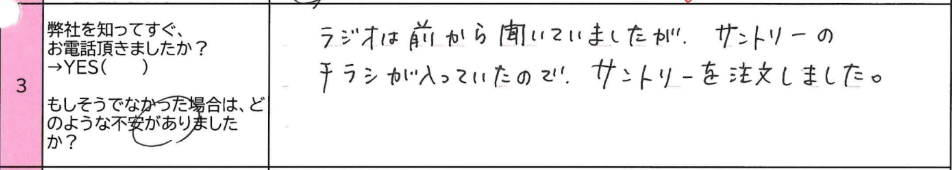 3
弊社を知ってすぐ、
お電話頂きましたか？
→YES(　　)
もしそうでなかった場合は、ど
のような不安がありました
か？
ラジオは前から聞いていましたが、サントリーの
チラシが入っていたので、サントリーを注文しました。